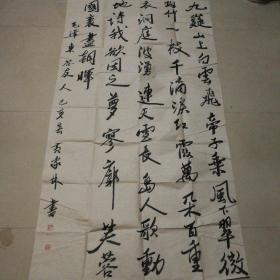 九嶷山上白雲飛帝子乘風下翠微
斑竹一枝千滴淚紅霞萬朵百重
衣洞庭波湧連天雪長島人歌動
地詩我欲因之夢寥廓芙蓉
國裏盡朝暉
毛澤東答友人己亥春林書